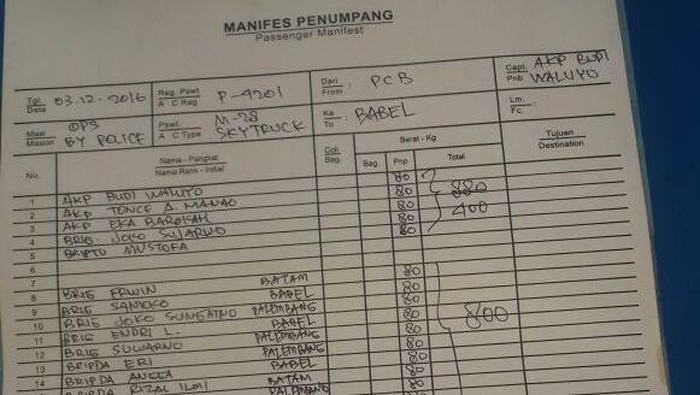 MANIFES PENUMPANG
Passenger Manifest
Tgl. Date 03.12-2016 Reg. Pswt A C Reg P-4201 Dari From : PCB Capt. Pnb AKP BUDI WALUYO
Misi Mission OPS BY POLICE Pswt. A C Type M-28 SKYTRUCK Ke To : BABEL Lm. Fc. :
No. Nama - Pangkat Name Rank - Initial Coli Bag. Berat - Kg Tujuan Destination
Bag. Pnp Total
1 AKP BUDI WALUYO 80
2 AKP TONCE A. MANAO 80 880
3 AKP EKA BAROKAH 80 400
4 BRIG. JOKO SUJARWO 80
5 BRIPTU MUSTOFA 80
6
7 80
8 BRIG ERWIN BATAM 80
9 BRIG SAMOKO BABEL 80
10 BRIG JOKO SUNGATNO PALEMBANG 80
11 BRIG ENDRI L. BABEL 80 800
12 BRIG SUWARNO PALEMBANG 80
13 BRIPDA ERI PALEMBANG 80
14 BRIPDA ANGGA BABEL 80
BRIPDA RIZAL ILMI BATAM 80
PALEMBANG